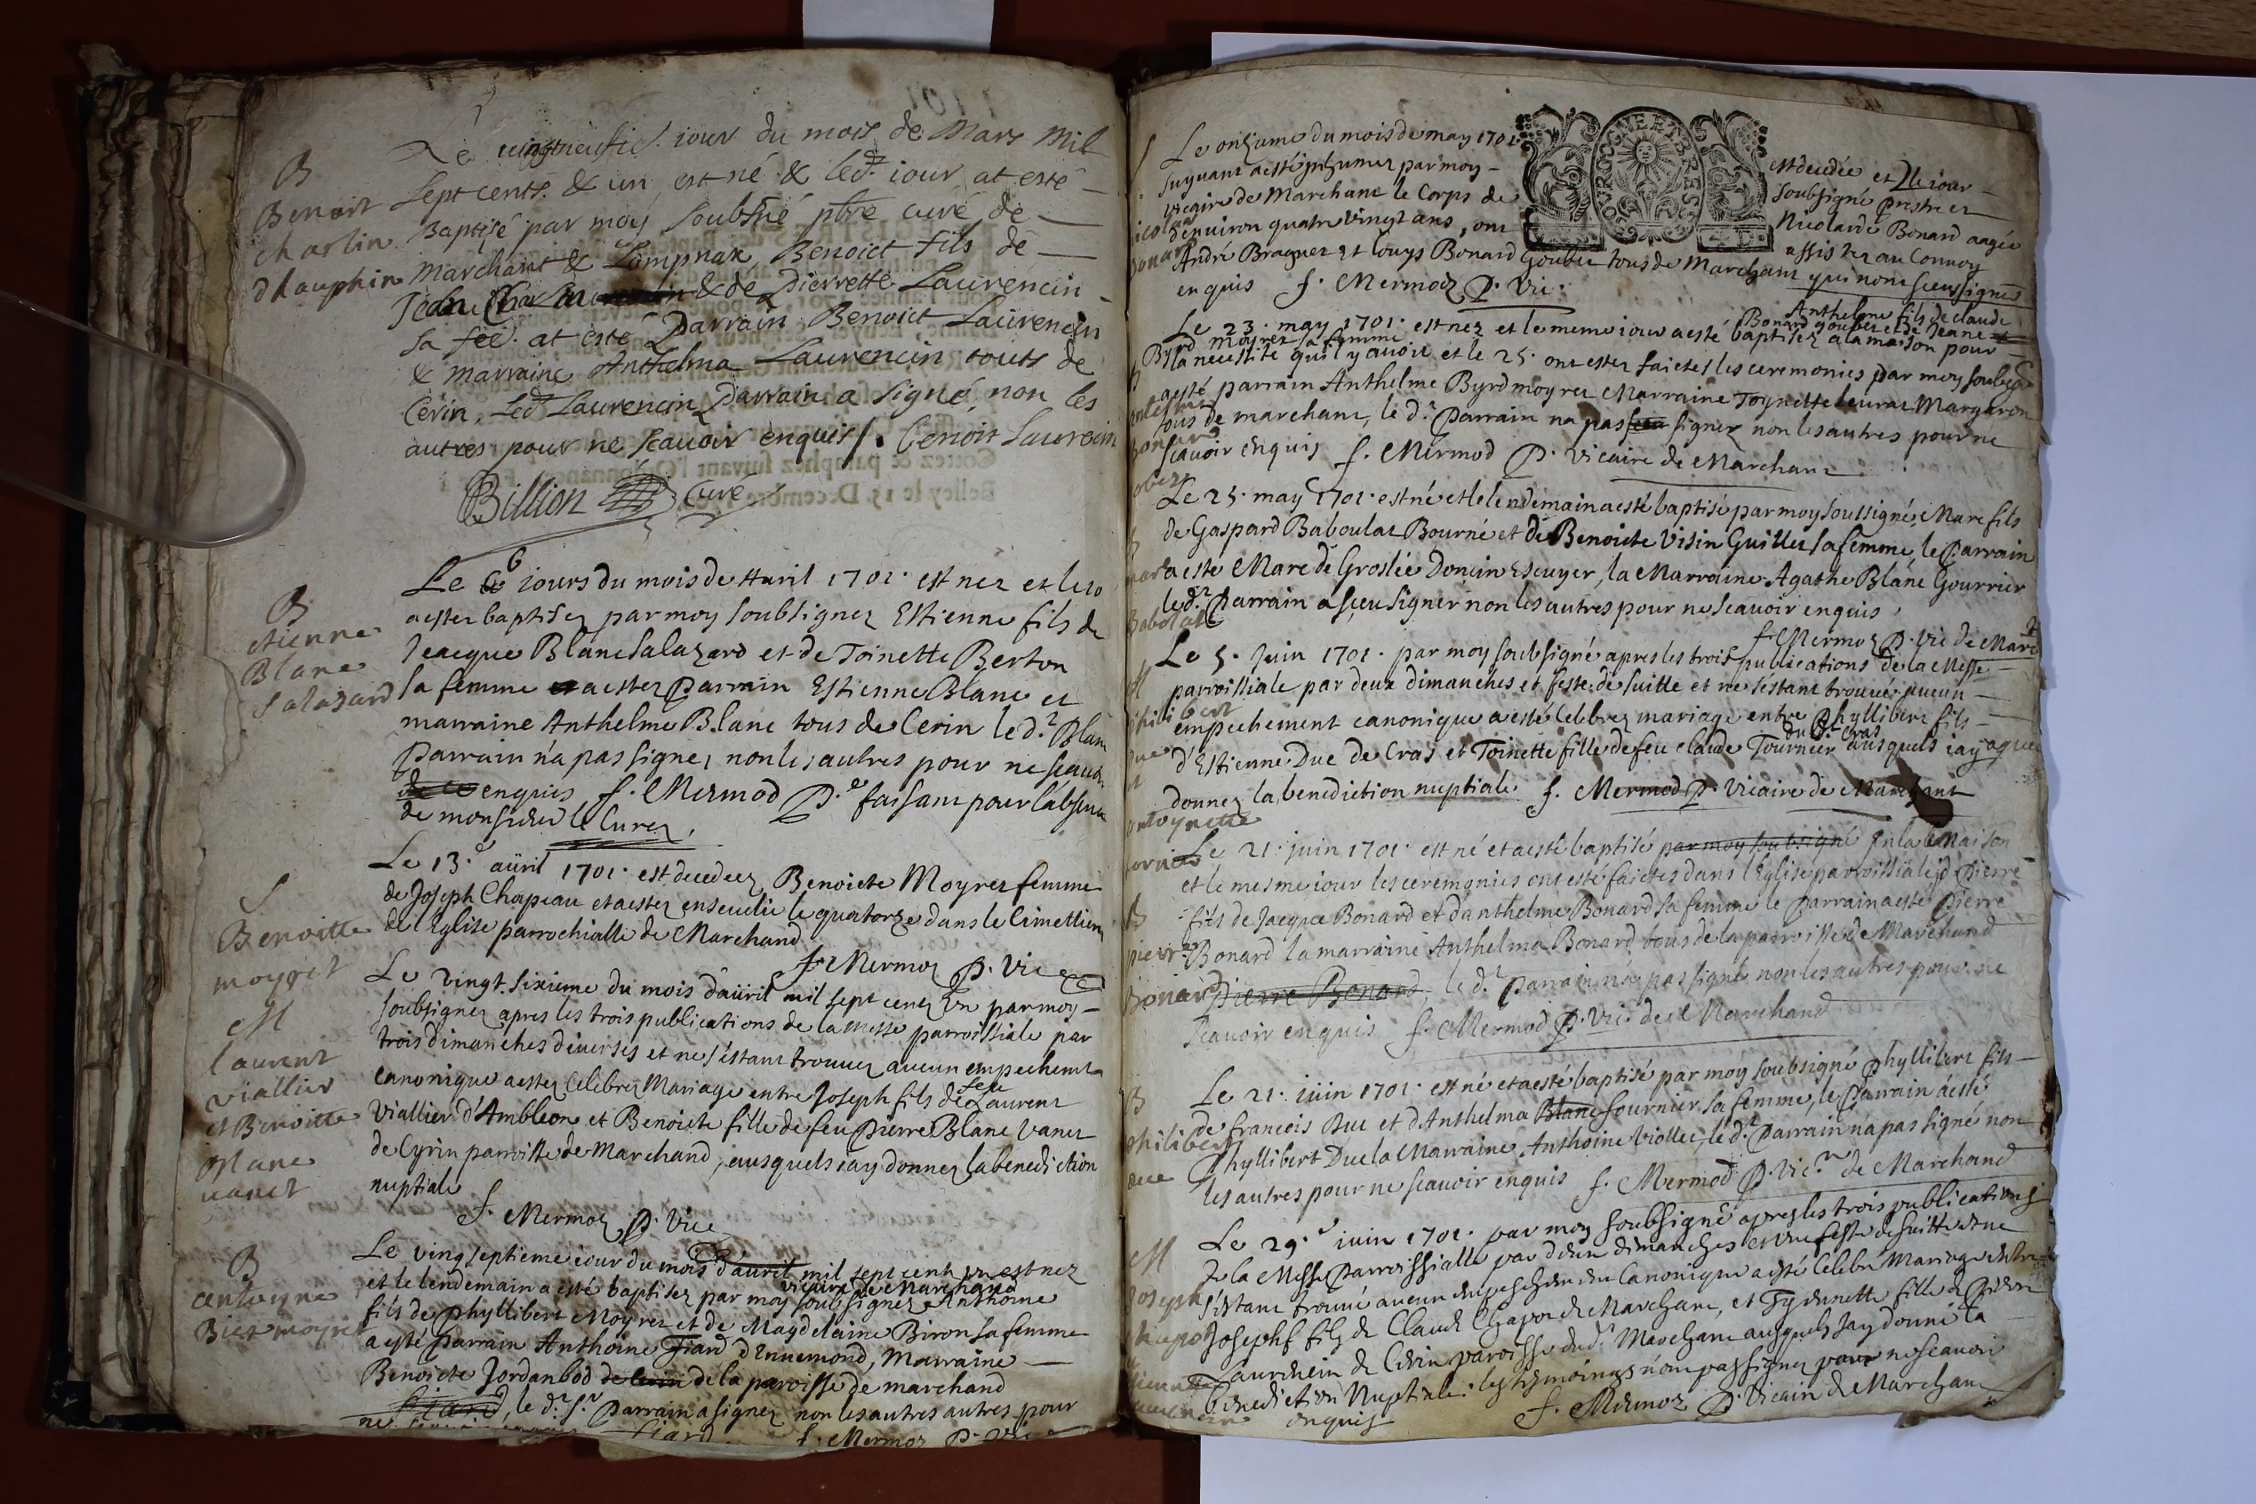 B
Benoit
charlin
dlauphin
Le vingtneufie. iour du mois de Mars Mil
sept cents & un est né & led. iour at esté
Baptisé par moy soubsné pbre curé de
Marchant & Lompnax, Benoict fils de
Jean Charlin & de Pierrette Laurencin
sa fee. at esté Parrain Benoict Laurencin
& marraine Anthelma Laurencin touts de
Cerin, Led. Laurencin Parrain a signé, non les
autres pour ne scauoir enquis /. Benoit Laurencin
Billion Curé
B
etienne
Blanc
salazard
Le 6 iours du mois de Auril 1701. est nez et le 10
aestez baptisez par moy soubsignez Estienne fils de
Jeacque Blanc Salazard et de Toinette Berton
sa femme aestez Parrain Estienne Blanc et
marraine Anthelme Blanc tous de Cerin le d. Blanc
Parrain n'a pas signez non les autres pour ne scauoir
enquis f. Mermod P. faisant pour labsence
de monsieur le Curez.
S
Benoitte
moyret
Le 13. auril 1701. est decedeez Benoicte Moyrez femme
de Joseph Chapeau et aestez enseuelie le quatorze dans le Cimettiere
de l'Eglise parrochialle de Marchand
f. Mermoz P. Vic
M
laurent
viallier
et Benoitte
Blanc
vanet
Le vingt sixieme du mois d'auril mil sept cent Un par moy
soubsignez apres les trois publications de la Messe parroissiale par
trois dimanches diuerses et ne s'estant trouuez aucun empechemt
canonique aestez Celebrez Mariage entre Joseph fils de feu Laurent
Viallier d'Ambleon et Benoicte fille de feu Pierre Blanc Vanez
de Cyrin parroisse de Marchand, ausquels iay donnez la benediction
nuptiale
f. Mermoz P. Vice
B
antoyne
Biet moyret
Le vingseptieme iour du mois d'auril mil sept cent un est nez
et le lendemain a esté baptisez par moy vicaire de Marchand soubsignez Anthoine
fils de Phyllibert Moyrez et de Magdelaine Biron sa femme
a esté Parrain Anthoine Fiard d'Ennemond, Marraine
Benoicte Jordanbod de la paroisse de marchand
le d. Sr Parrain a signez non les autres autres pour
f. Mermoz P. Vic
Le onziame du mois de may 1701 est decedée et le iour
suyuant a esté inhumez par moy soubsigné prestre et
vicaire de Marchant le Corps de Nicolarde Bonard aagée
d'enuiron quatre vingt ans, ont assistez au Conuoy
André Bragnez et Louys Bonard Goubet tous de Marchant qui nont sceu signer
enquis f. Mermoz P. Vic.
BOURGOGNE ET BRESSE
Le 23. may 1701. est nez et le meme iour a esté baptisez a la maison pour Anthelme fils de claude Bonard goubet et de Jeane
Byrd moyrez sa femme
la necessité quil y auoit et le 25. ont estez faictes les ceremonies par moy soubsé
aesté parrain Anthelme Byrdmoyrez Marraine Toynette Leurat Margaron
tous de marchant, le d. Parrain na pas signez non les autres pour ne
scauoir enquis f. Mermod P. Vicaire de Marchant
Le 25. may 1701. est né et le lendemain aesté baptisé par moy soussigné Marc fils
de Gaspard Baboulat Bourné et de Benoicte Visin Guillez sa femme, le Parrain
a este Marc de Groslée Doncin Escuyer, la Marraine Agathe Blanc Gourrier
le d. Parrain a sceu signer non les autres pour ne scauoir enquis
f. Mermoz P. Vic de Mart
Le 5. Juin 1701. par moy soubsigné apres les trois publications de la Messe
parroissiale par deux dimanches et feste de suitte et ne s'estant trouué aucun
empechement canonique a esté Celebrez mariage entre Phyllibert fils
d'Estienne Duc de Cras et Toinette fille de feu Claude Tournier du d. Cras ausquels iay
donnez la benediction nuptiale f. Mermod P. Vicaire de Marchant
Le 21. juin 1701. est né et aesté baptisé par moy soubsigné En la Maison
et le mesme iour les ceremonies ont esté faictes dans l'Eglise parroissiale Pierre
fils de Jacque Bonard et d'anthelme Bonard sa femme le Parrain aesté Pierre
Bonard la marraine Anthelma Bonard tous de la parroisse de Marchand
Pierre Bonard, le d. Parrain na pas signé non les autres pour ne
scauoir enquis f. Mermod P. Vic. de Marchand
B
philibert
duc
Le 21. iuin 1701. est né et aesté baptisé par moy soubsigné Phyllibert fils
de francois Duc et d'Anthelma Blanc fournier sa femme, le Parrain aesté
Phyllibert Duc la Marraine Anthoine Viollet, le d. Parrain n'a pas signé non
les autres pour ne scauoir enquis f. Mermod P. Vic.re de Marchand
M
Joseph
Le 29. iuin 1701. par moy soubsigné apres les trois publications
de la Messe Parroissialle par deux dimanches et une feste de suitte et ne
s'estant trouué aucun empeschement Canonique a esté Celebré Mariage entre
Joseph filz de Claude Chapon de Marchant, et Tyennette fille de Pierre
Laurencin de Cirin paroisse dud. Marchant ausquels Jay donné la
benediction Nuptiale: les tesmoings n'ont pas signez pour ne scauoir
enquis f. Mermoz P. Vicaire de Marchant